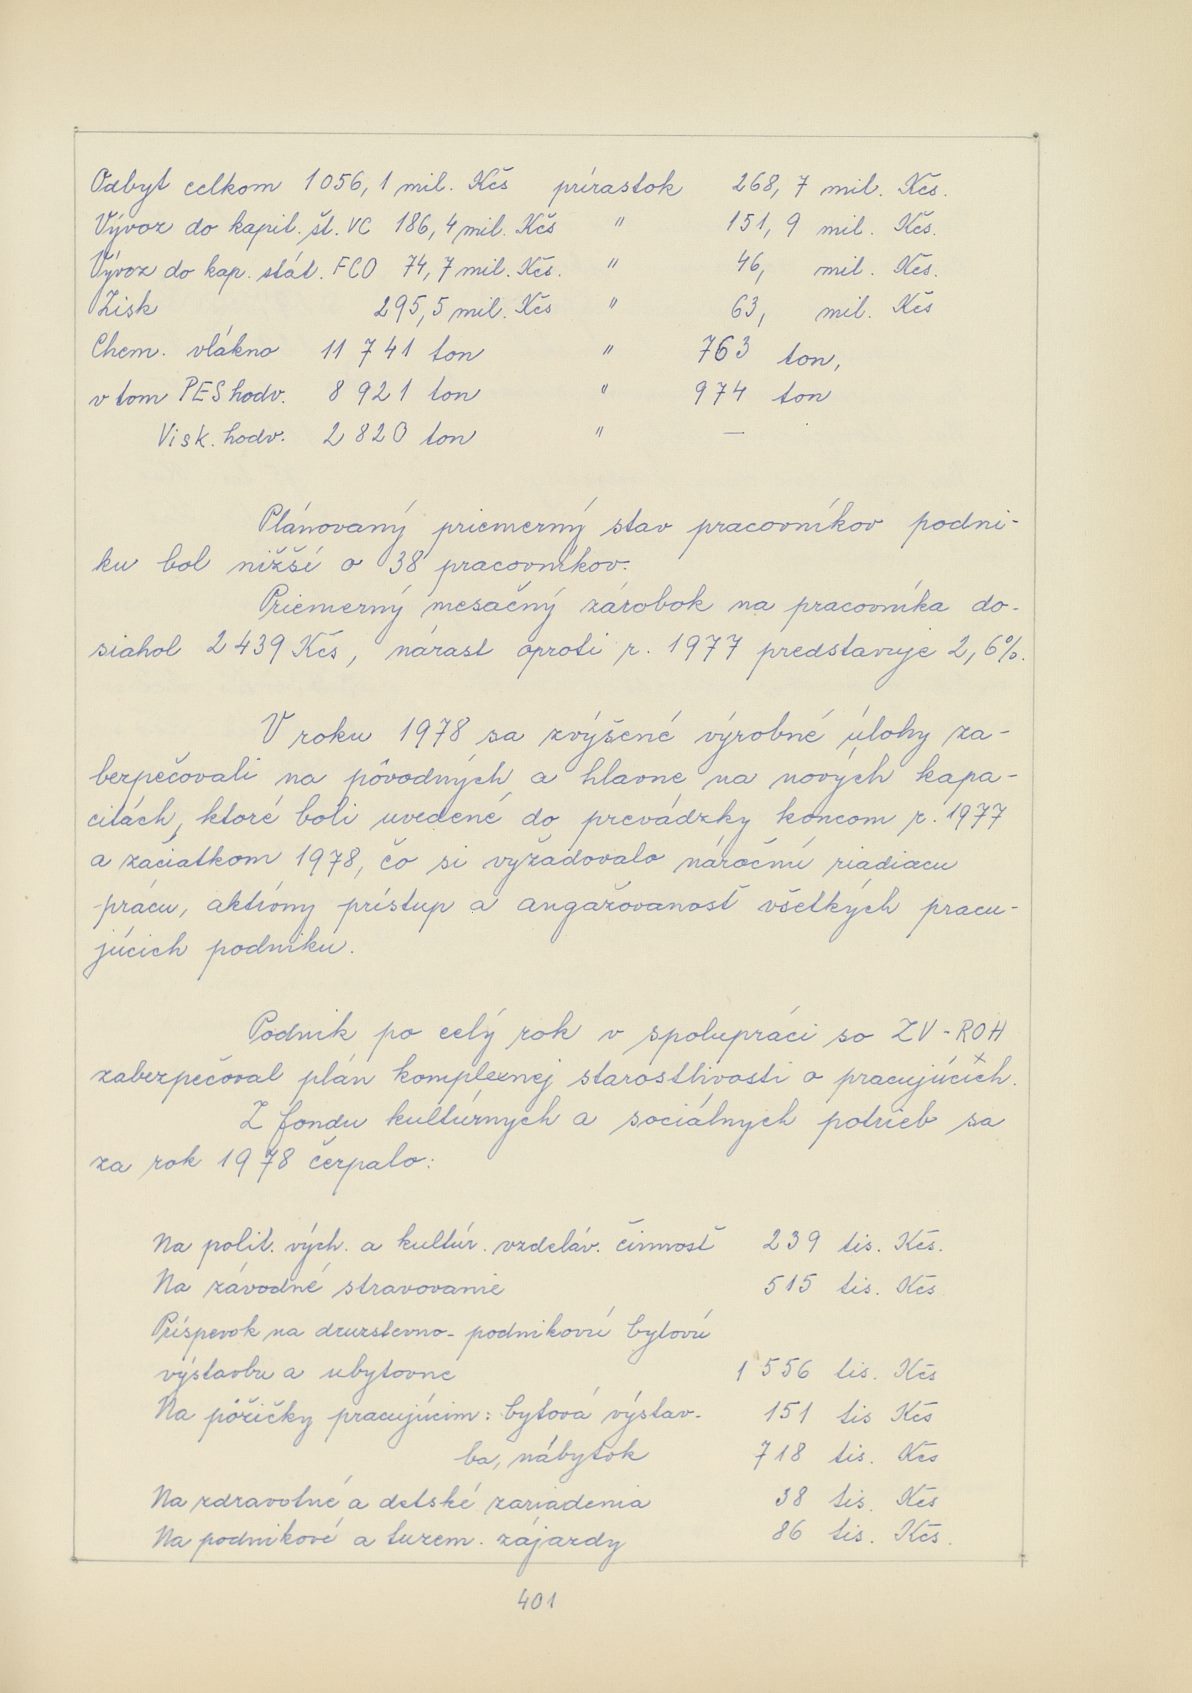 Odbyt celkom 1056,1 mil. Kčs prírastok 268,7 mil. Kčs.
Vývoz do kapit. št. VC 186,4 mil. Kčs " 151,9 mil. Kčs.
Vývoz do kap. stát. FCO 74,7 mil. Kčs. " 46, mil. Kčs.
Zisk 295,5 mil. Kčs " 63, mil. Kčs
Chem. vlákno 11 741 ton " 763 ton,
v tom PES hodv. 8 921 ton " 974 ton
Visk. hodv. 2 820 ton " —
Plánovaný priemerný stav pracovníkov podni-
ku bol nižší o 38 pracovníkov.
Priemerný mesačný zárobok na pracovníka do-
siahol 2439 Kčs, nárast oproti r. 1977 predstavuje 2,6%.
V roku 1978 sa zvýšené výrobné úlohy za-
bezpečovali na pôvodných a hlavne na nových kapa-
citách, ktoré boli uvedené do prevádzky koncom r. 1977
a začiatkom 1978, čo si vyžadovalo náročnú riadiacu
prácu, aktívny prístup a angažovanosť všetkých pracu-
júcich podniku.
Podnik po celý rok v spolupráci so ZV-ROH
zabezpečoval plán komplexnej starostlivosti o pracujúcich.
Z fondu kultúrnych a sociálnych potrieb sa
za rok 1978 čerpalo:
Na polit. vých. a kultúr. vzdeláv. činnosť 239 tis. Kčs.
Na závodné stravovanie 515 tis. Kčs
Príspevok na druzstevno-podnikovú bytovú
výstavbu a ubytovne 1 556 tis. Kčs
Na pôžičky pracujúcim: bytová výstav- 151 tis Kčs
ba, nábytok 718 tis. Kčs
Na zdravotné a detské zariadenia 38 tis. Kčs
Na podnikové a tuzem. zájazdy 86 tis. Kčs.
401